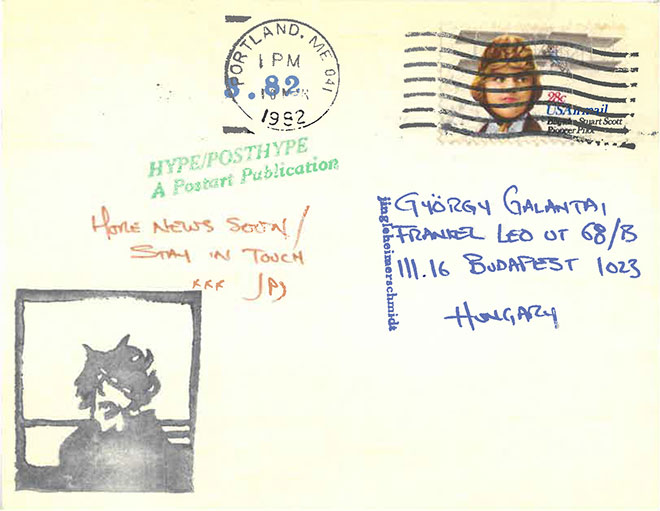 PORTLAND, ME 041
1 PM
3.82
1982
28c
USAirmail
Blanche Stuart Scott
Pioneer Pilot
HYPE/POSTHYPE
A Postart Publication
MORE NEWS SOON/
STAY IN TOUCH
xxx
jingleheimerschmidt
GYÖRGY GALANTAI
FRANKEL LEO UT 68/B
III.16 BUDAPEST 1023
HUNGARY